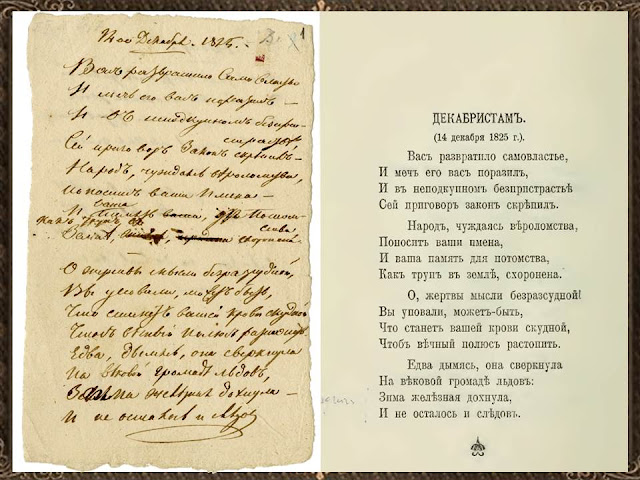 14ое Декабря 1825.—
Васъ развратило Самовластье
И мечь его васъ поразилъ—
И въ неподкупномъ безпри-
страстьѣ
Сей приговоръ Законъ скрѣпилъ.
Народъ, чуждаясь вѣроломства,
Поноситъ ваши имена—
И ваша память для потом-
ства
Какъ трупъ въ
Землѣ, схоронена
О жертвы мысли безразсудной,
Вы уповали, можетъ быть,
Что станетъ вашей крови скудной,
Чтобъ вѣчный полюсъ растопить.
Едва, дымясь, она сверкнула
На вѣковой громадѣ льдовъ,
Зима желѣзная дохнула—
И не осталось и слѣдовъ
ДЕКАБРИСТАМЪ.
(14 декабря 1825 г.).
Васъ развратило самовластье,
И мечъ его васъ поразилъ,
И въ неподкупномъ безпристрастьѣ
Сей приговоръ законъ скрѣпилъ.
Народъ, чуждаясь вѣроломства,
Поноситъ ваши имена,
И ваша память для потомства,
Какъ трупъ въ землѣ, схоронена.
О, жертвы мысли безразсудной!
Вы уповали, можетъ-быть,
Что станетъ вашей крови скудной,
Чтобъ вѣчный полюсъ растопить.
Едва дымясь, она сверкнула
На вѣковой громадѣ льдовъ:
Зима желѣзная дохнула,
И не осталось и слѣдовъ.